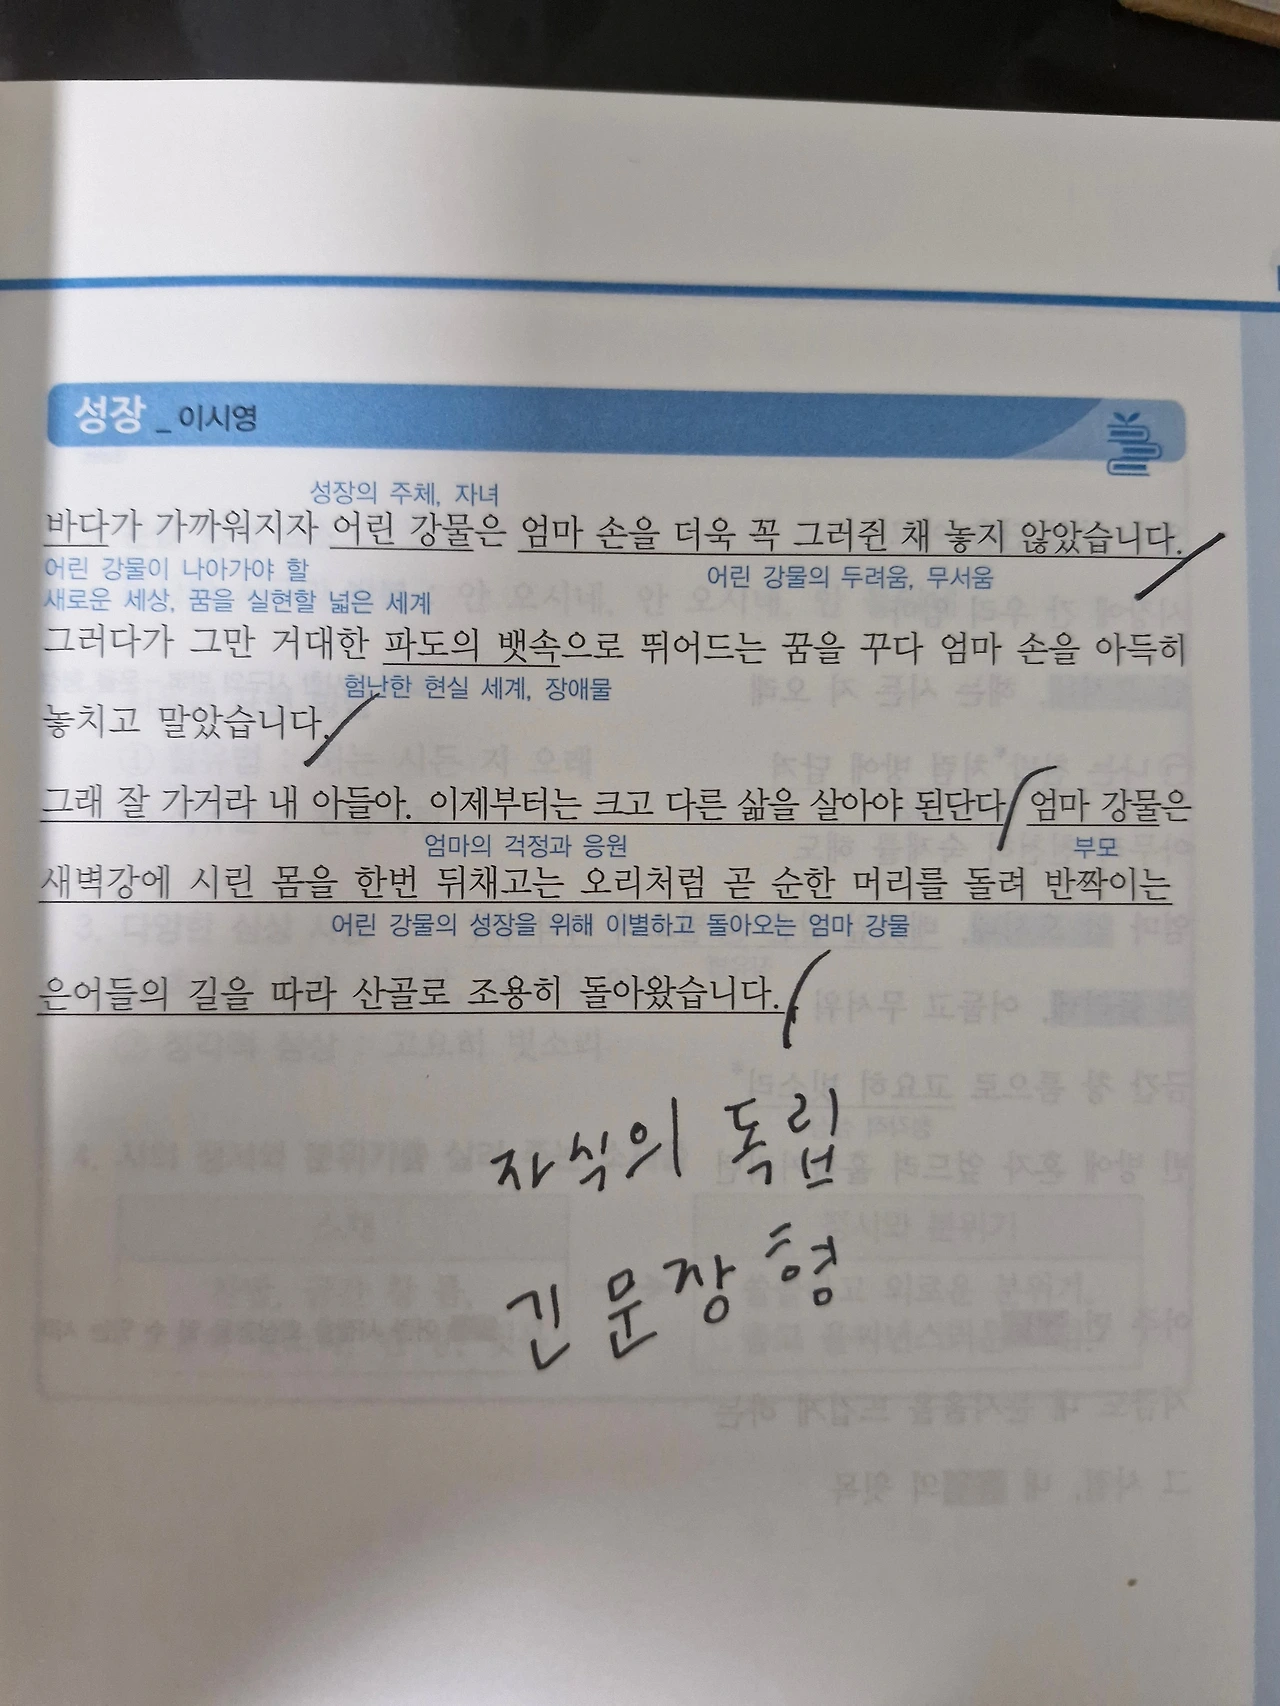 성장 _ 이시영
성장의 주체, 자녀
바다가 가까워지자 어린 강물은 엄마 손을 더욱 꼭 그러쥔 채 놓지 않았습니다.
어린 강물이 나아가야 할
어린 강물의 두려움, 무서움
새로운 세상, 꿈을 실현할 넓은 세계
그러다가 그만 거대한 파도의 뱃속으로 뛰어드는 꿈을 꾸다 엄마 손을 아득히
험난한 현실 세계, 장애물
놓치고 말았습니다.
그래 잘 가거라 내 아들아. 이제부터는 크고 다른 삶을 살아야 된단다 엄마 강물은
엄마의 걱정과 응원
부모
새벽강에 시린 몸을 한번 뒤채고는 오리처럼 곧 순한 머리를 돌려 반짝이는
어린 강물의 성장을 위해 이별하고 돌아오는 엄마 강물
은어들의 길을 따라 산골로 조용히 돌아왔습니다.
자식의 독립
긴 문장 형